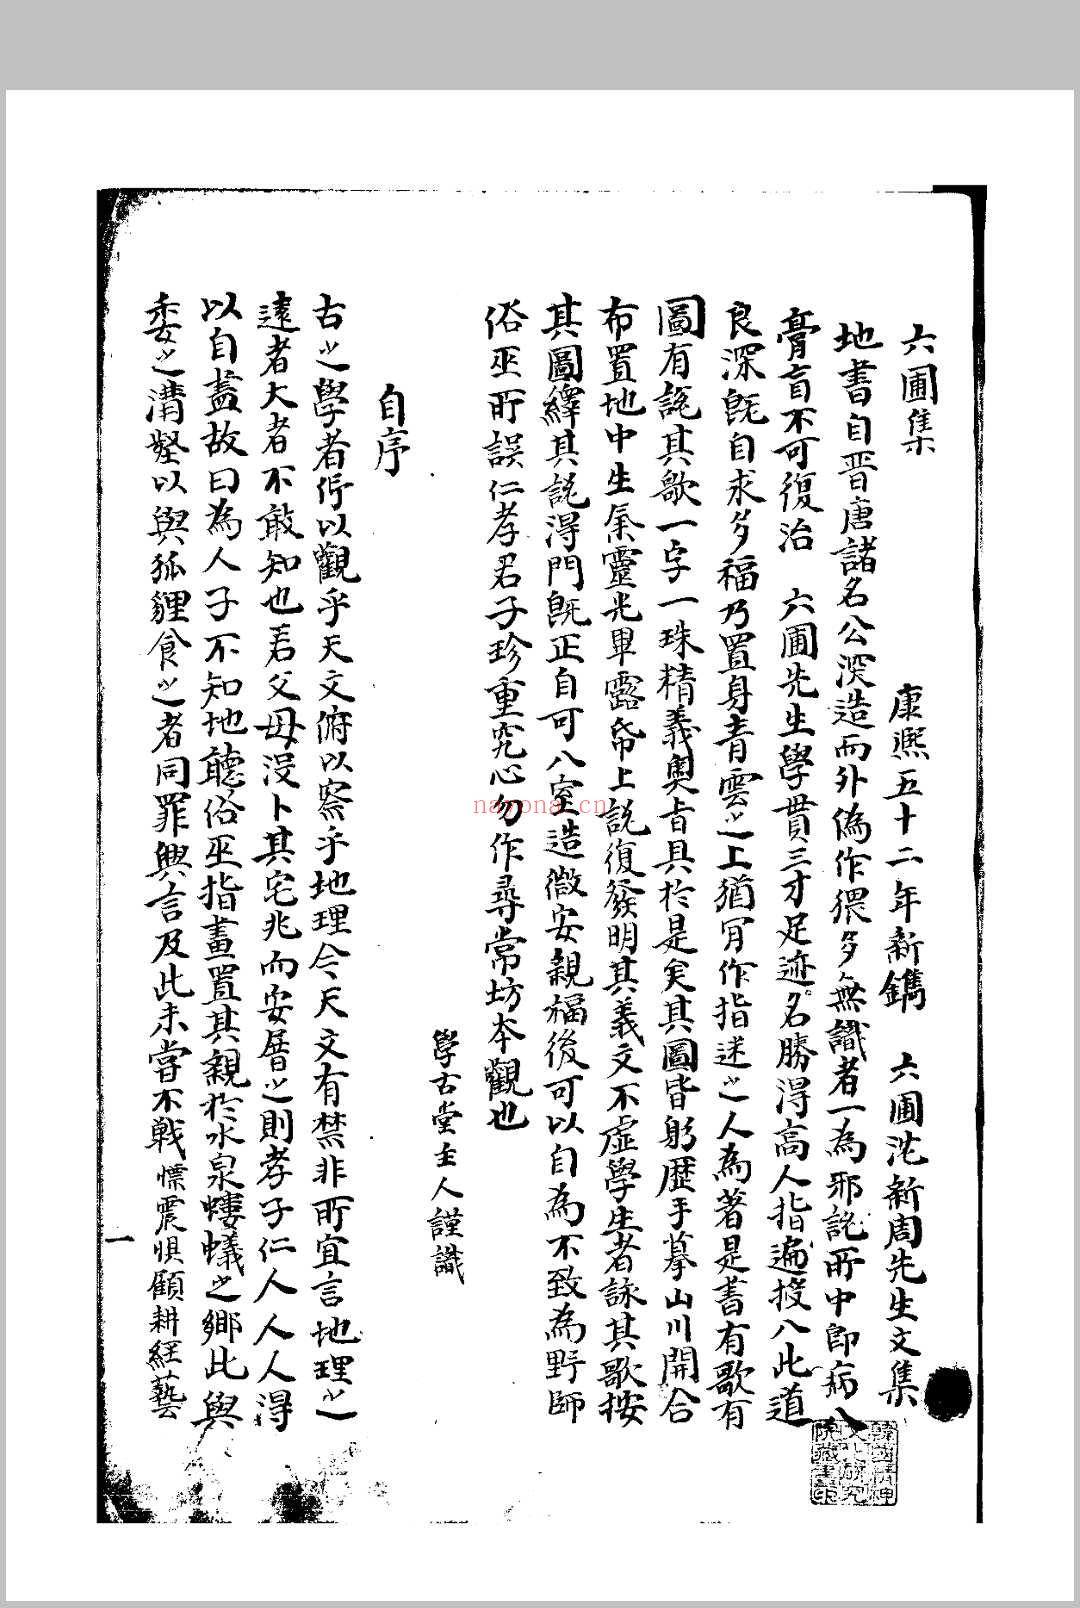 六圃集
康熙五十二年新鐫 六圃沈新周先生文集
地書自晋唐諸名公深造而外偽作猥多無識者一為邪説所中即病入
膏盲不可復治 六圃先生學貫三才足迹名勝得高人指遍授八此道
良深既自求多福乃置身青雲之上猶肎作指迷之人為著是書有歌有
圖有説其歌一字一珠精義奥旨具於是矣其圖皆躬歷手摹山川開合
布置地中生氣靈光畢露帋上説復發明其義文不虛學生者詠其歌按
其圖繹其説得門既正自可入室造微安親福後可以自為不致為野師
俗巫所誤仁孝君子珍重究心勿作尋常坊本觀也
學古堂主人謹識
自序
古之學者仰以觀乎天文俯以察乎地理今天文有禁非所宜言地理之
遠者大者不敢知也若父母沒卜其宅兆而安厝之則孝子仁人人人得
以自盡故曰為人子不知地聽俗巫指畫置其親於水泉螻蟻之鄉此與
委之溝壑以與狐貍食之者同罪興言及此未嘗不戰慄震惧顧耕經藝
一
nayona.cn